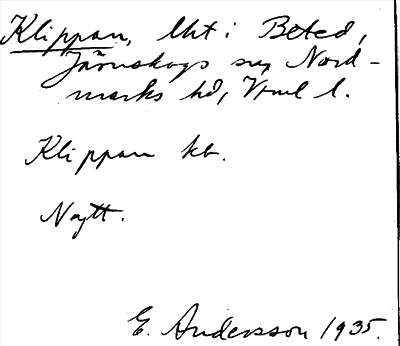 Klippan, lht i Beted,
Järnskogs sn, Nord-
marks hd, Vrml l.
Klippan kb.
Nytt.
E. Andersson 1935.